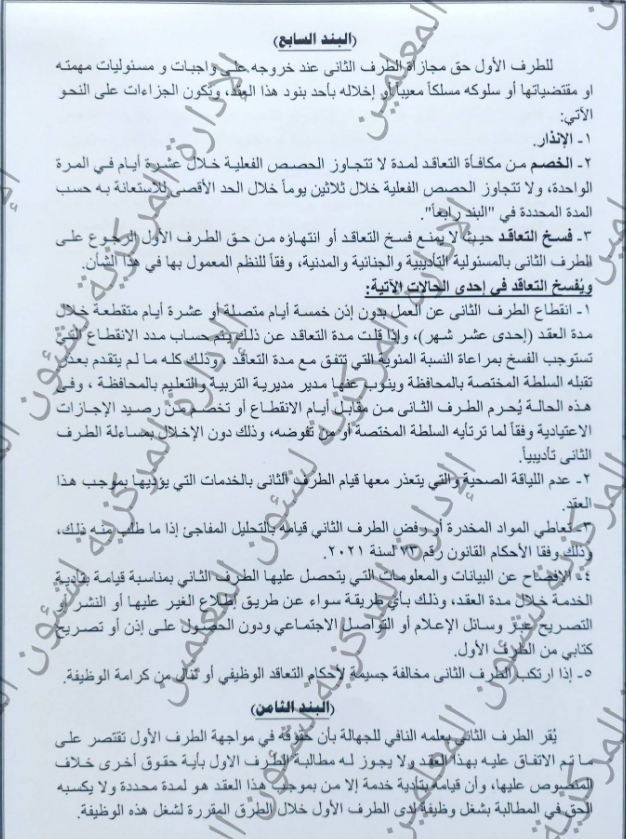 (البند السابع)
للطرف الأول حق مجازاة الطرف الثانى عند خروجه على واجبات و مسئوليات مهمته
او مقتضياتها أو سلوكه مسلكاً معيباً أو إخلاله بأحد بنود هذا العقد، وتكون الجزاءات على النحو
الآتي:
١- الإنذار.
٢- الخصم من مكافأة التعاقد لمدة لا تتجاوز الحصص الفعلية خلال عشرة أيام في المرة
الواحدة، ولا تتجاوز الحصص الفعلية خلال ثلاثين يوماً خلال الحد الأقصى للاستعانة به حسب
المدة المحددة في "البند رابعاً".
٣- فسخ التعاقد حيث لا يمنع فسخ التعاقد أو انتهاؤه من حق الطرف الأول الرجوع على
الطرف الثانى بالمسئولية التأديبية والجنائية والمدنية، وفقاً للنظم المعمول بها في هذا الشأن.
ويُفسخ التعاقد في إحدى الحالات الآتية:
١- انقطاع الطرف الثانى عن العمل بدون إذن خمسة أيام متصلة أو عشرة أيام متقطعة خلال
مدة العقد (إحدى عشر شهر)، وإذا قلت مدة التعاقد عن ذلك يتم حساب مدد الانقطاع التي
تستوجب الفسخ بمراعاة النسبة المئوية التي تتفق مع مدة التعاقد ، وذلك كله ما لم يتقدم بعذر
تقبله السلطة المختصة بالمحافظة وينوب عنها مدير مديرية التربية والتعليم بالمحافظة ، وفى
هذه الحالة يُحرم الطرف الثانى من مقابل أيام الانقطاع أو تخصم من رصيد الإجازات
الاعتيادية وفقاً لما ترتأيه السلطة المختصة أو من تفوضه، وذلك دون الإخلال بمساءلة الطرف
الثانى تأديبياً.
٢- عدم اللياقة الصحية والتي يتعذر معها قيام الطرف الثانى بالخدمات التي يؤديها بموجب هذا
العقد.
٣- تعاطي المواد المخدرة أو رفض الطرف الثاني قيامه بالتحليل المفاجئ إذا ما طلب منه ذلك،
وذلك وفقا الأحكام القانون رقم ٧٣ لسنة ٢٠٢١.
٤- الإفصاح عن البيانات والمعلومات التي يتحصل عليها الطرف الثاني بمناسبة قيامة بتأدية
الخدمة خلال مدة العقد، وذلك بأي طريقة سواء عن طريق إطلاع الغير عليها أو النشر أو
التصريح عبر وسائل الإعلام أو التواصل الاجتماعي ودون الحصول على إذن أو تصريح
كتابي من الطرف الأول.
٥- إذا ارتكب الطرف الثانى مخالفة جسيمة لأحكام التعاقد الوظيفي أو تنال من كرامة الوظيفة.
(البند الثامن)
يُقر الطرف الثاني بعلمه النافي للجهالة بأن حقوقه في مواجهة الطرف الأول تقتصر على
ما تم الاتفاق عليه بهذا العقد ولا يجوز له مطالبة الطرف الاول بأية حقوق أخرى خلاف
المنصوص عليها، وأن قيامة بتأدية خدمة إلا من بموجب هذا العقد هو لمدة محددة ولا يكسبه
الحق في المطالبة بشغل وظيفة لدى الطرف الأول خلال الطرق المقررة لشغل هذه الوظيفة.
الإدارة المركزية لشئون المعلمين